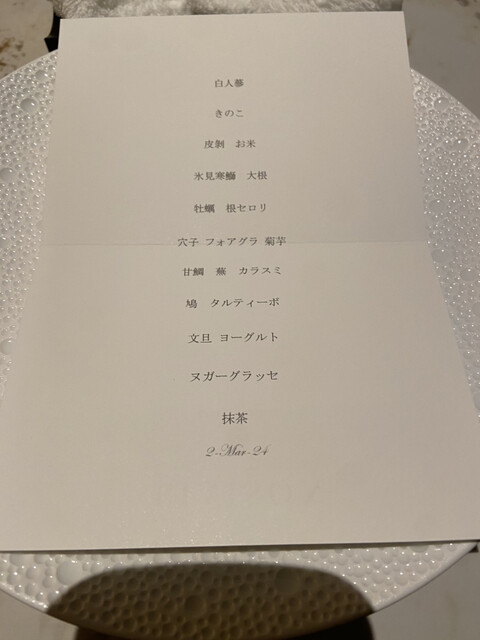 白人蔘
きのこ
皮剝　お米
氷見寒鰤　大根
牡蠣　根セロリ
穴子 フォアグラ 菊芋
甘鯛　蕪　カラスミ
鳩　タルティーボ
文旦 ヨーグルト
ヌガーグラッセ
抹茶
2-Mar-24